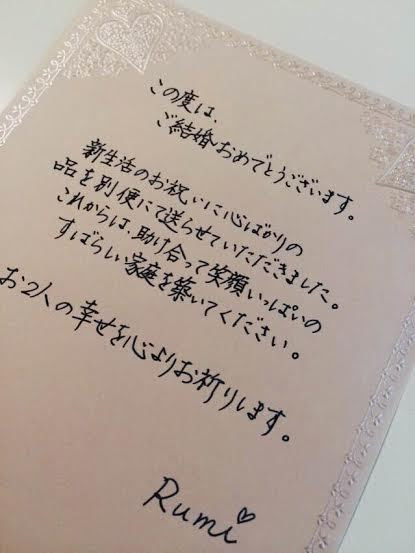 この度は、
ご結婚おめでとうございます。
新生活のお祝いに心ばかりの
品を別便にて送らせていただきました。
これからは、助け合って笑顔いっぱいの
すばらしい家庭を築いてください。
お2人の幸せを心よりお祈りします。
Rumi♡